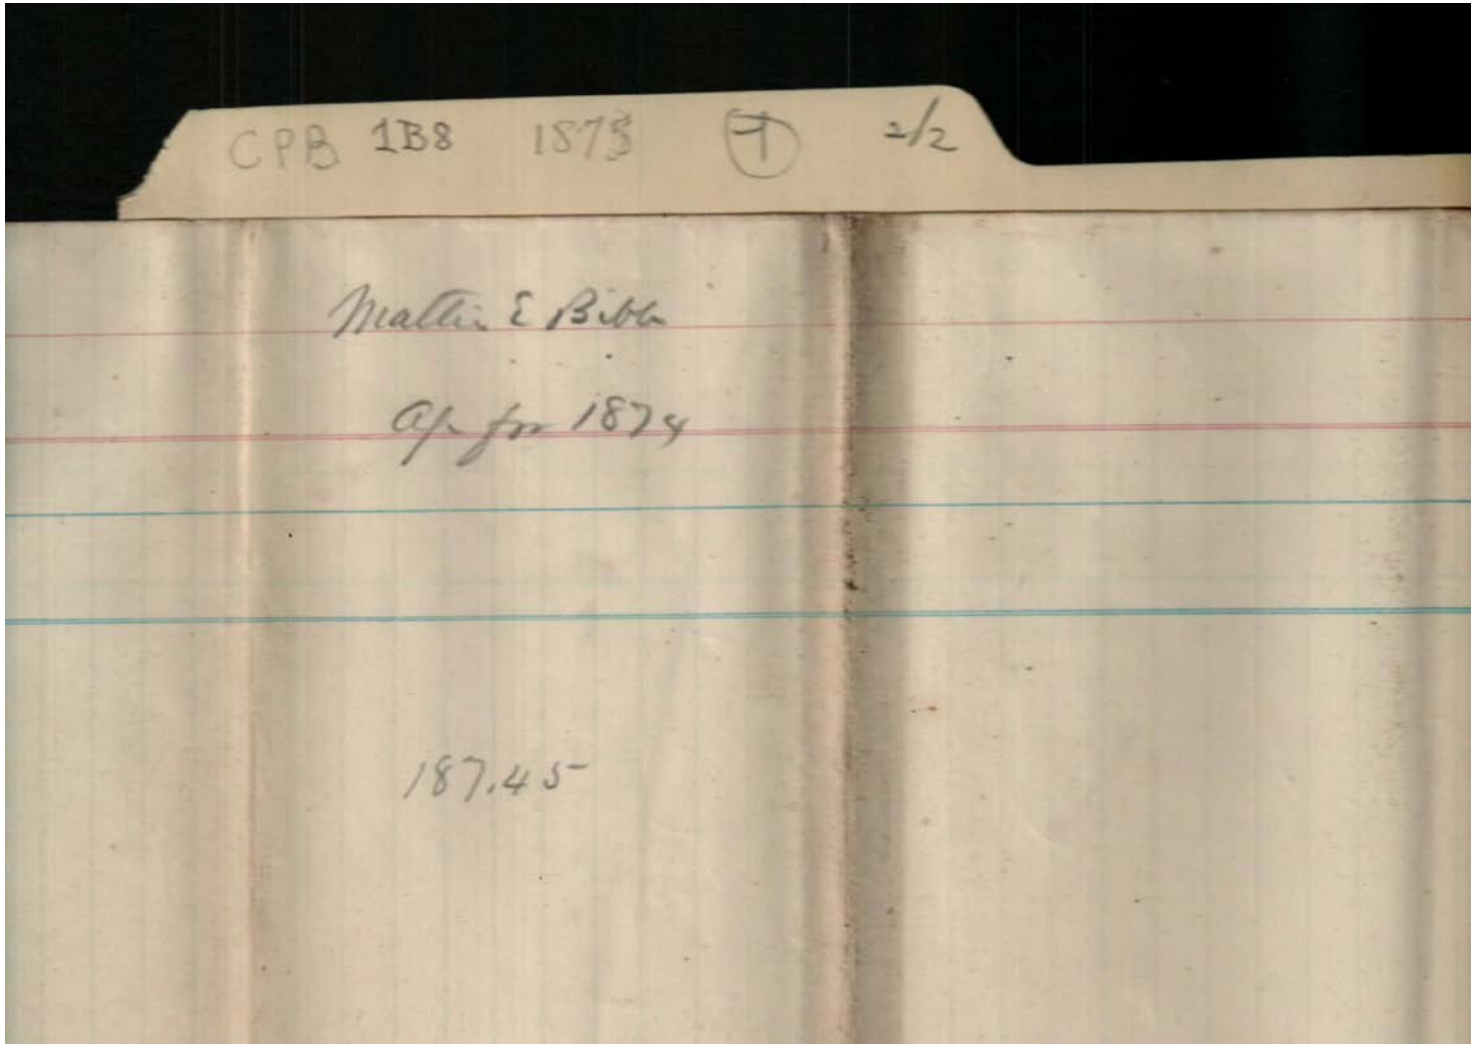 CPB 1B8 1873 T 2/2
Mattie E Bibb
for 1874
187.45